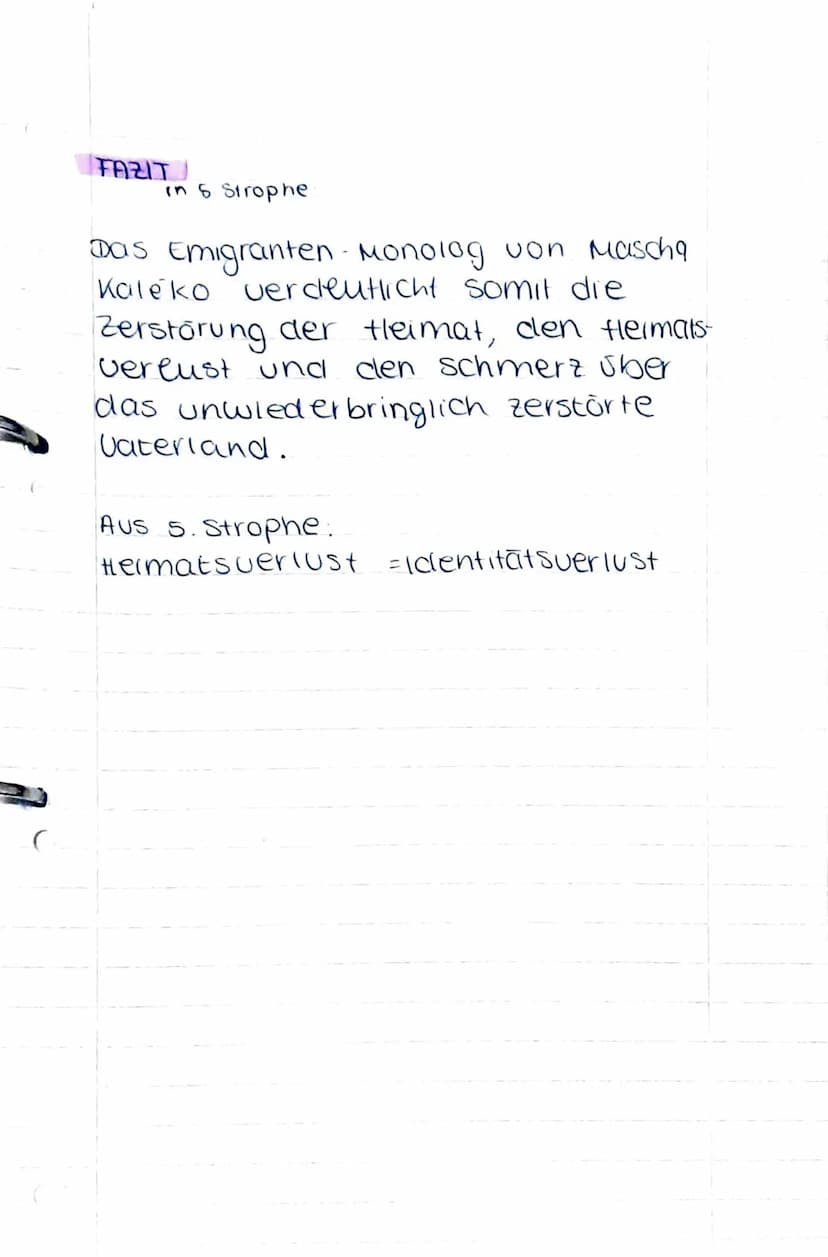 FAZIT
in 5 Strophe
Das Emigranten-Monolog von Mascha
Kaléko verdeutlicht somit die
Zerstörung der Heimat, den Heimats-
verlust und den Schmerz über
das unwiederbringlich zerstörte
Vaterland.
Aus 5. Strophe:
Heimatsverlust = Identitätsverlust